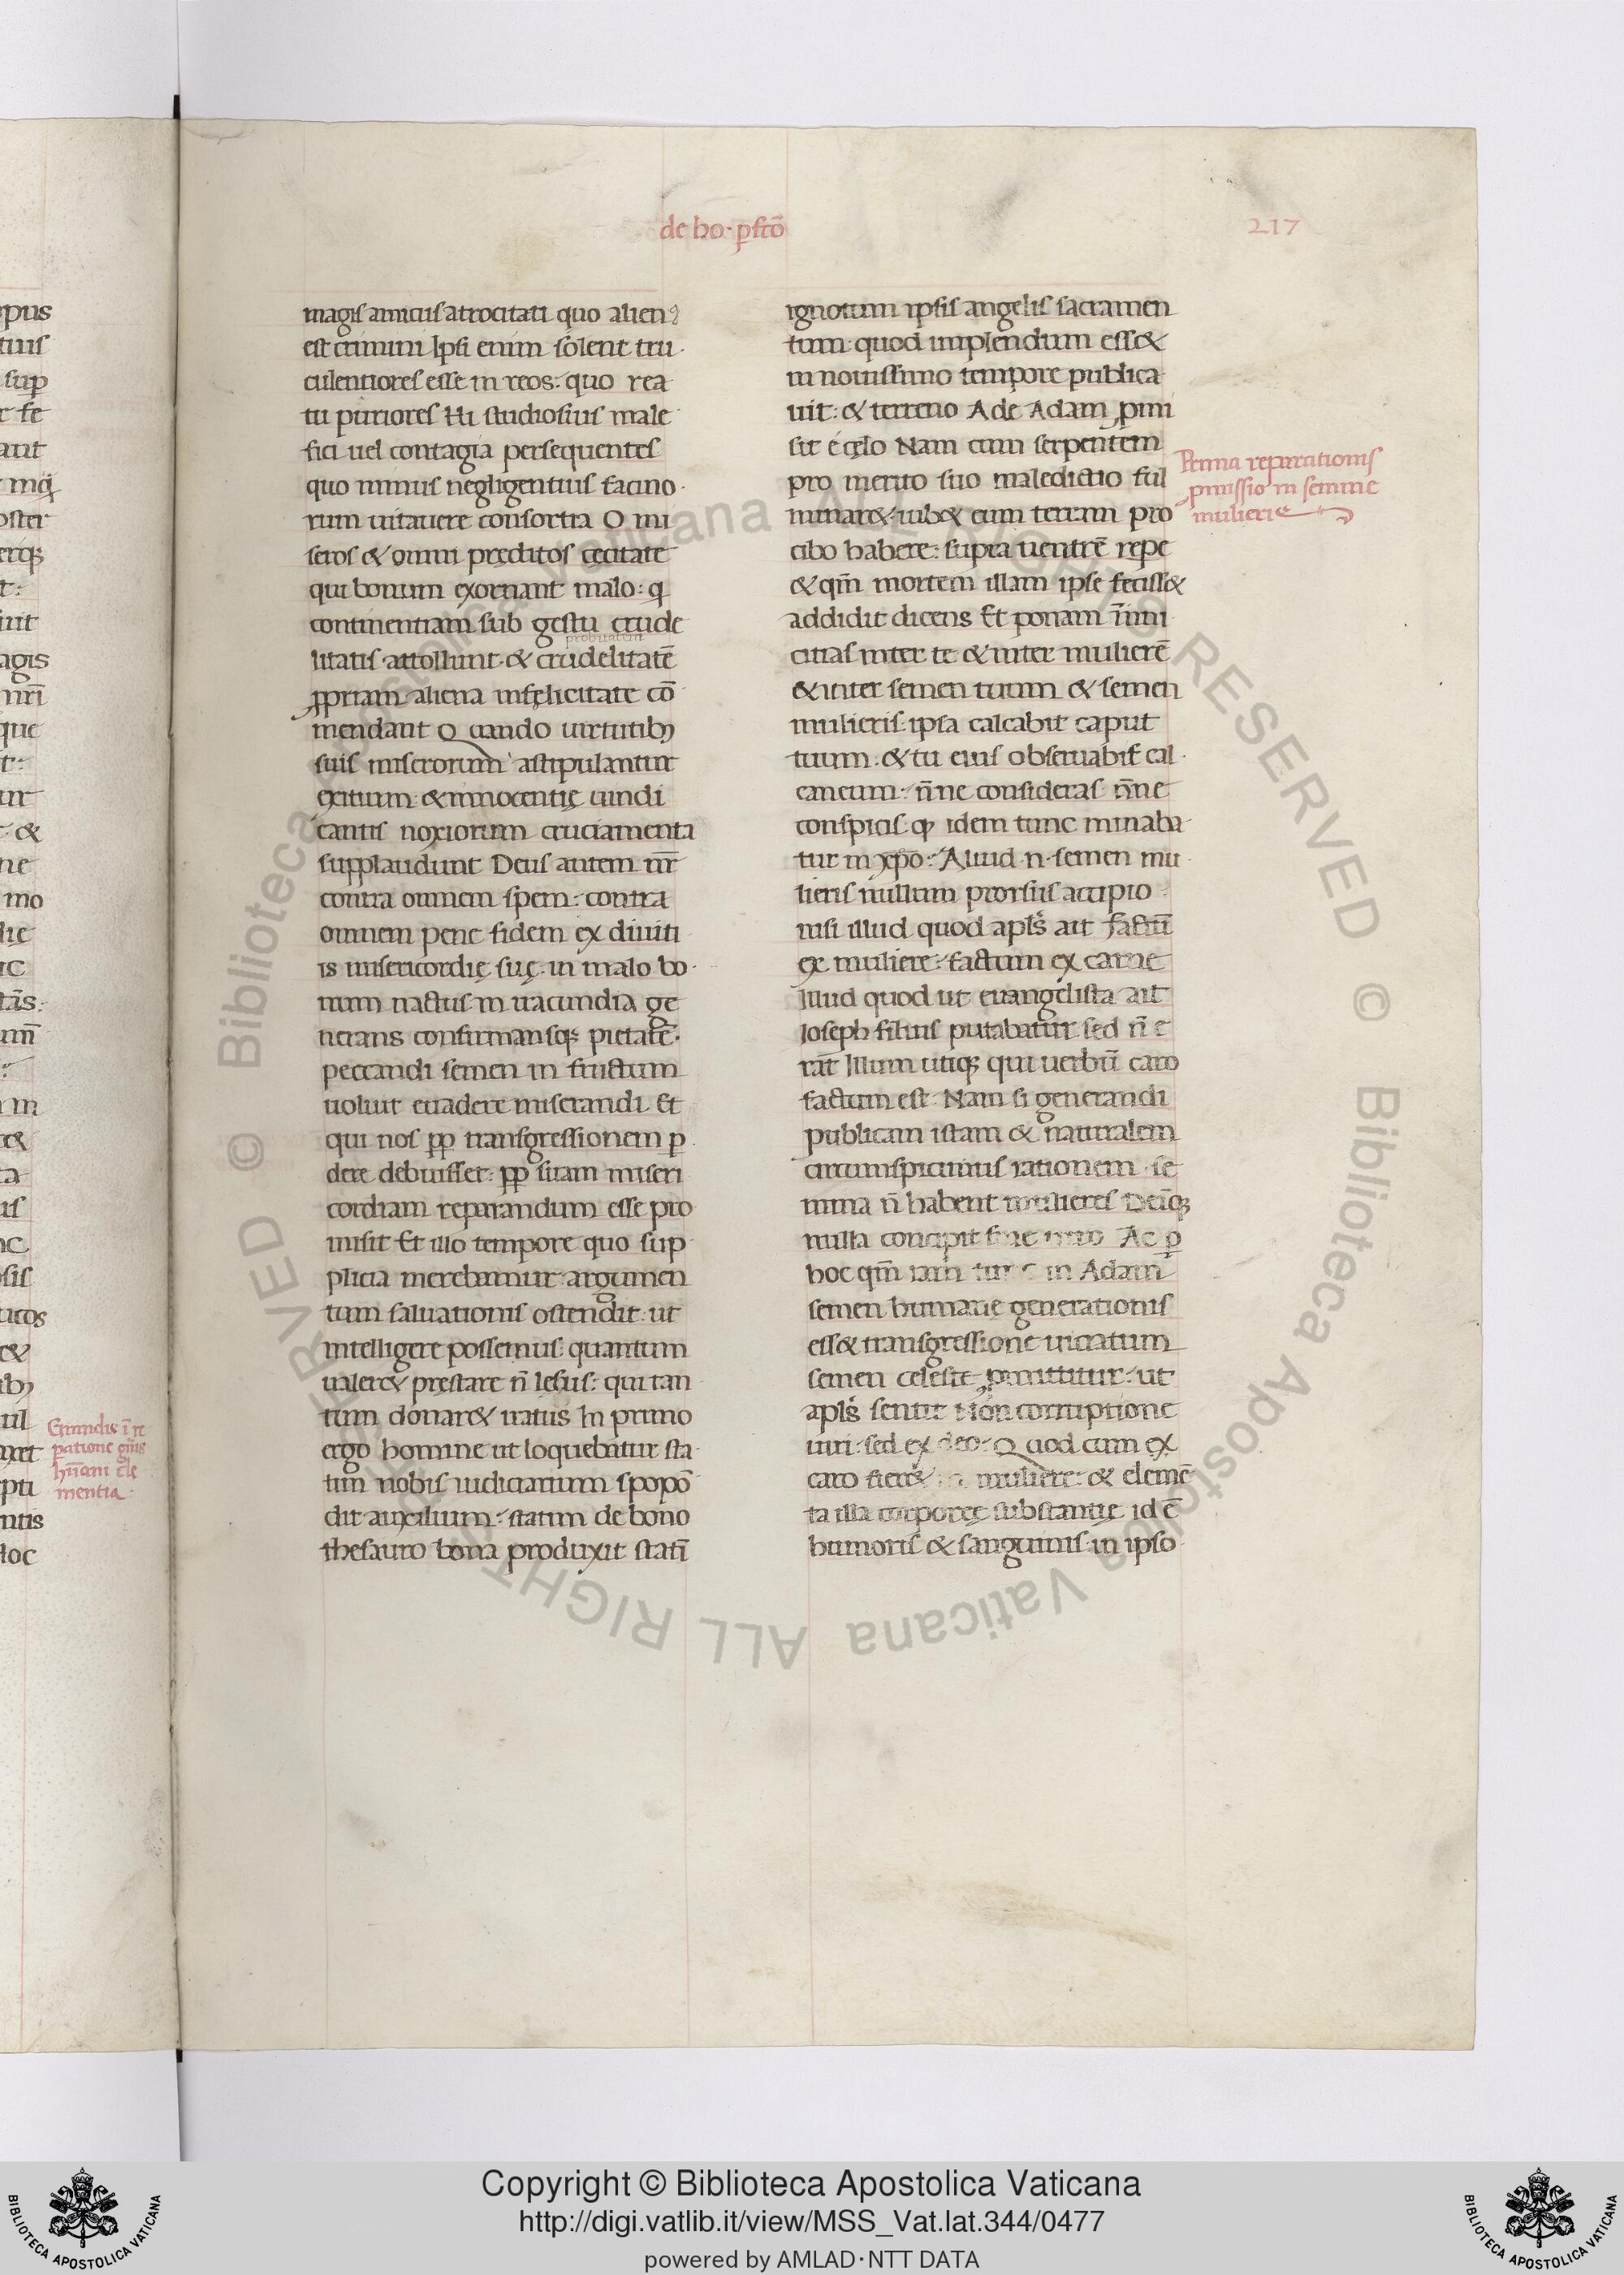 de ho. p̄stō
217
magis amicus atrocitati quo alienꝰ
est crimini Ipsi enim solent tru
culentiores esse in reos: quo rea
tu puriores Hi studiosius male
fici uel contagia persequentes
quo minus negligentius facino
rum uitauere consortia O mi
seros & omni pręditos cęcitate
qui bonum exornant malo: q
continentiam sub gestu crude
probitatem
litatis attollunt & crudelitatē
ꝓpriam aliena infęlicitate cō
mendant Quando uirtutibꝫ
suis miserorum astipulantur
exitium & innocentię uindi
cantis noxiorum cruciamenta
supplaudunt Deus autem nr̄
contra omnem spem: contra
omnem pene fidem ex diuiti
is misericordię suę in malo bo
num nactus in iracundia ge
nerans confirmansqꝫ pietatē.
peccandi semen in fructum
uoluit euadere miserandi Et
qui nos pp transgressionem ꝑ
dere debuisset: pp suam miseri
cordiam reparandum esse pro
misit Et illo tempore quo sup
plicia merebamur argumen
tum saluationis ostendit: ut
intelligere possemus: quantum
ualer& pręstare n̄ lęsus: qui tan
tum donar& iratus In primo
ergo homine ut loquebatur sta
tim nobis iudiciarium spopō
dit auxilium: statim de bono
thesauro bona produxit statī
ignotum ipsis angelis sacramen
tum quod implendum ess&
in nouissimo tempore publica
uit: & terreno Ade Adam ꝓmi
sit e cęlo Nam cum serpentem
pro merito suo maledictio ful
minar& iub& eum terram pro
cibo habere: supra uentrē repe
& qm̄ mortem illam ipse feciss&
addidit dicens Et ponam inimi
citias inter te & inter mulierē
& inter semen tuum & semen
mulieris ipsa calcabit caput
tuum: & tu eius obseruabis cal
caneum: n̄ne consideras n̄ne
conspicis qꝫ idem tunc minaba
tur in xp̄o: Aliud n. semen mu
lieris nullum prorsus accipio
nisi illud quod apl̄s ait factū
ex muliere: factum ex carne
Illud quod ut euangelista ait
Ioseph filius putabatur sed n̄ e
rat Illum utiqꝫ qui uerbū caro
factum est Nam si generandi
publicam istam & naturalem
circumspicimus rationem se
mina n̄ habent mulieres Deniqꝫ
nulla concipit sine uiro Ac ꝑ
hoc qm̄ iam tunc in Adam
semen humanę generationis
ess& transgressione uitiatum
semen celeste ꝓmittitur: ut
apl̄s sentit non corruptione
uiri: sed ex deo: Quod cum ex
caro fier& muliere: & elemē
ta illa corporeę substantię id ē
humoris & sanguinis in ipso
Prima reparationis
ꝓmissio in semine
mulieris
Errandis ī re
patione gn̄is
hūani cle
mentia
Copyright © Biblioteca Apostolica Vaticana
http://digi.vatlib.it/view/MSS_Vat.lat.344/0477
powered by AMLAD·NTT DATA
BIBLIOTECA APOSTOLICA VATICANA
BIBLIOTECA APOSTOLICA VATICANA
© Biblioteca Apostolica Vaticana ALL RIGHTS RESERVED © Biblioteca Apostolica Vaticana ALL RIGHTS RESERVED